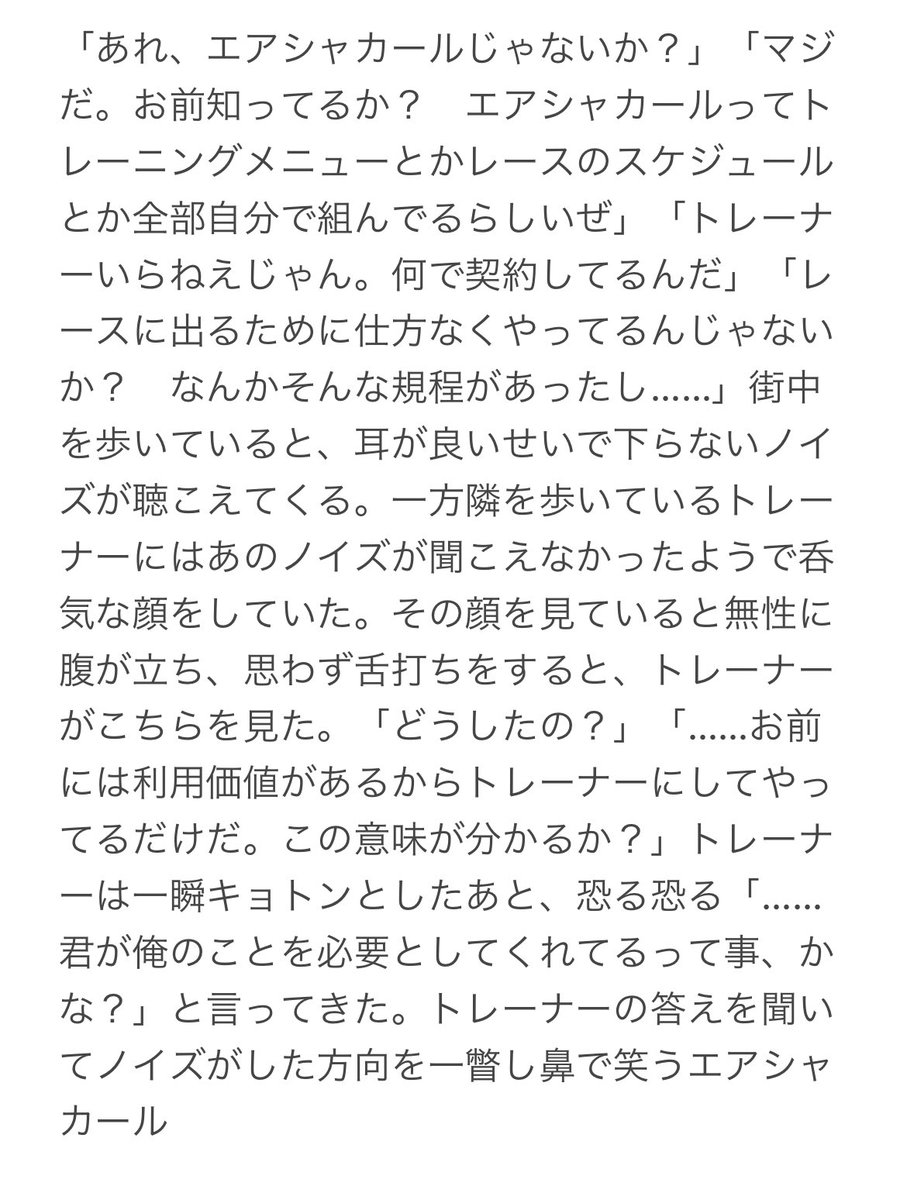 「あれ、エアシャカールじゃないか？」「マジ
だ。お前知ってるか？　エアシャカールってト
レーニングメニューとかレースのスケジュール
とか全部自分で組んでるらしいぜ」「トレーナ
ーいらねえじゃん。何で契約してるんだ」「レ
ースに出るために仕方なくやってるんじゃない
か？　なんかそんな規程があったし……」街中
を歩いていると、耳が良いせいで下らないノイ
ズが聴こえてくる。一方隣を歩いているトレー
ナーにはあのノイズが聞こえなかったようで呑
気な顔をしていた。その顔を見ていると無性に
腹が立ち、思わず舌打ちをすると、トレーナー
がこちらを見た。「どうしたの？」「……お前
には利用価値があるからトレーナーにしてやっ
てるだけだ。この意味が分かるか？」トレーナ
ーは一瞬キョトンとしたあと、恐る恐る「……
君が俺のことを必要としてくれてるって事、か
な？」と言ってきた。トレーナーの答えを聞い
てノイズがした方向を一瞥し鼻で笑うエアシャ
カール